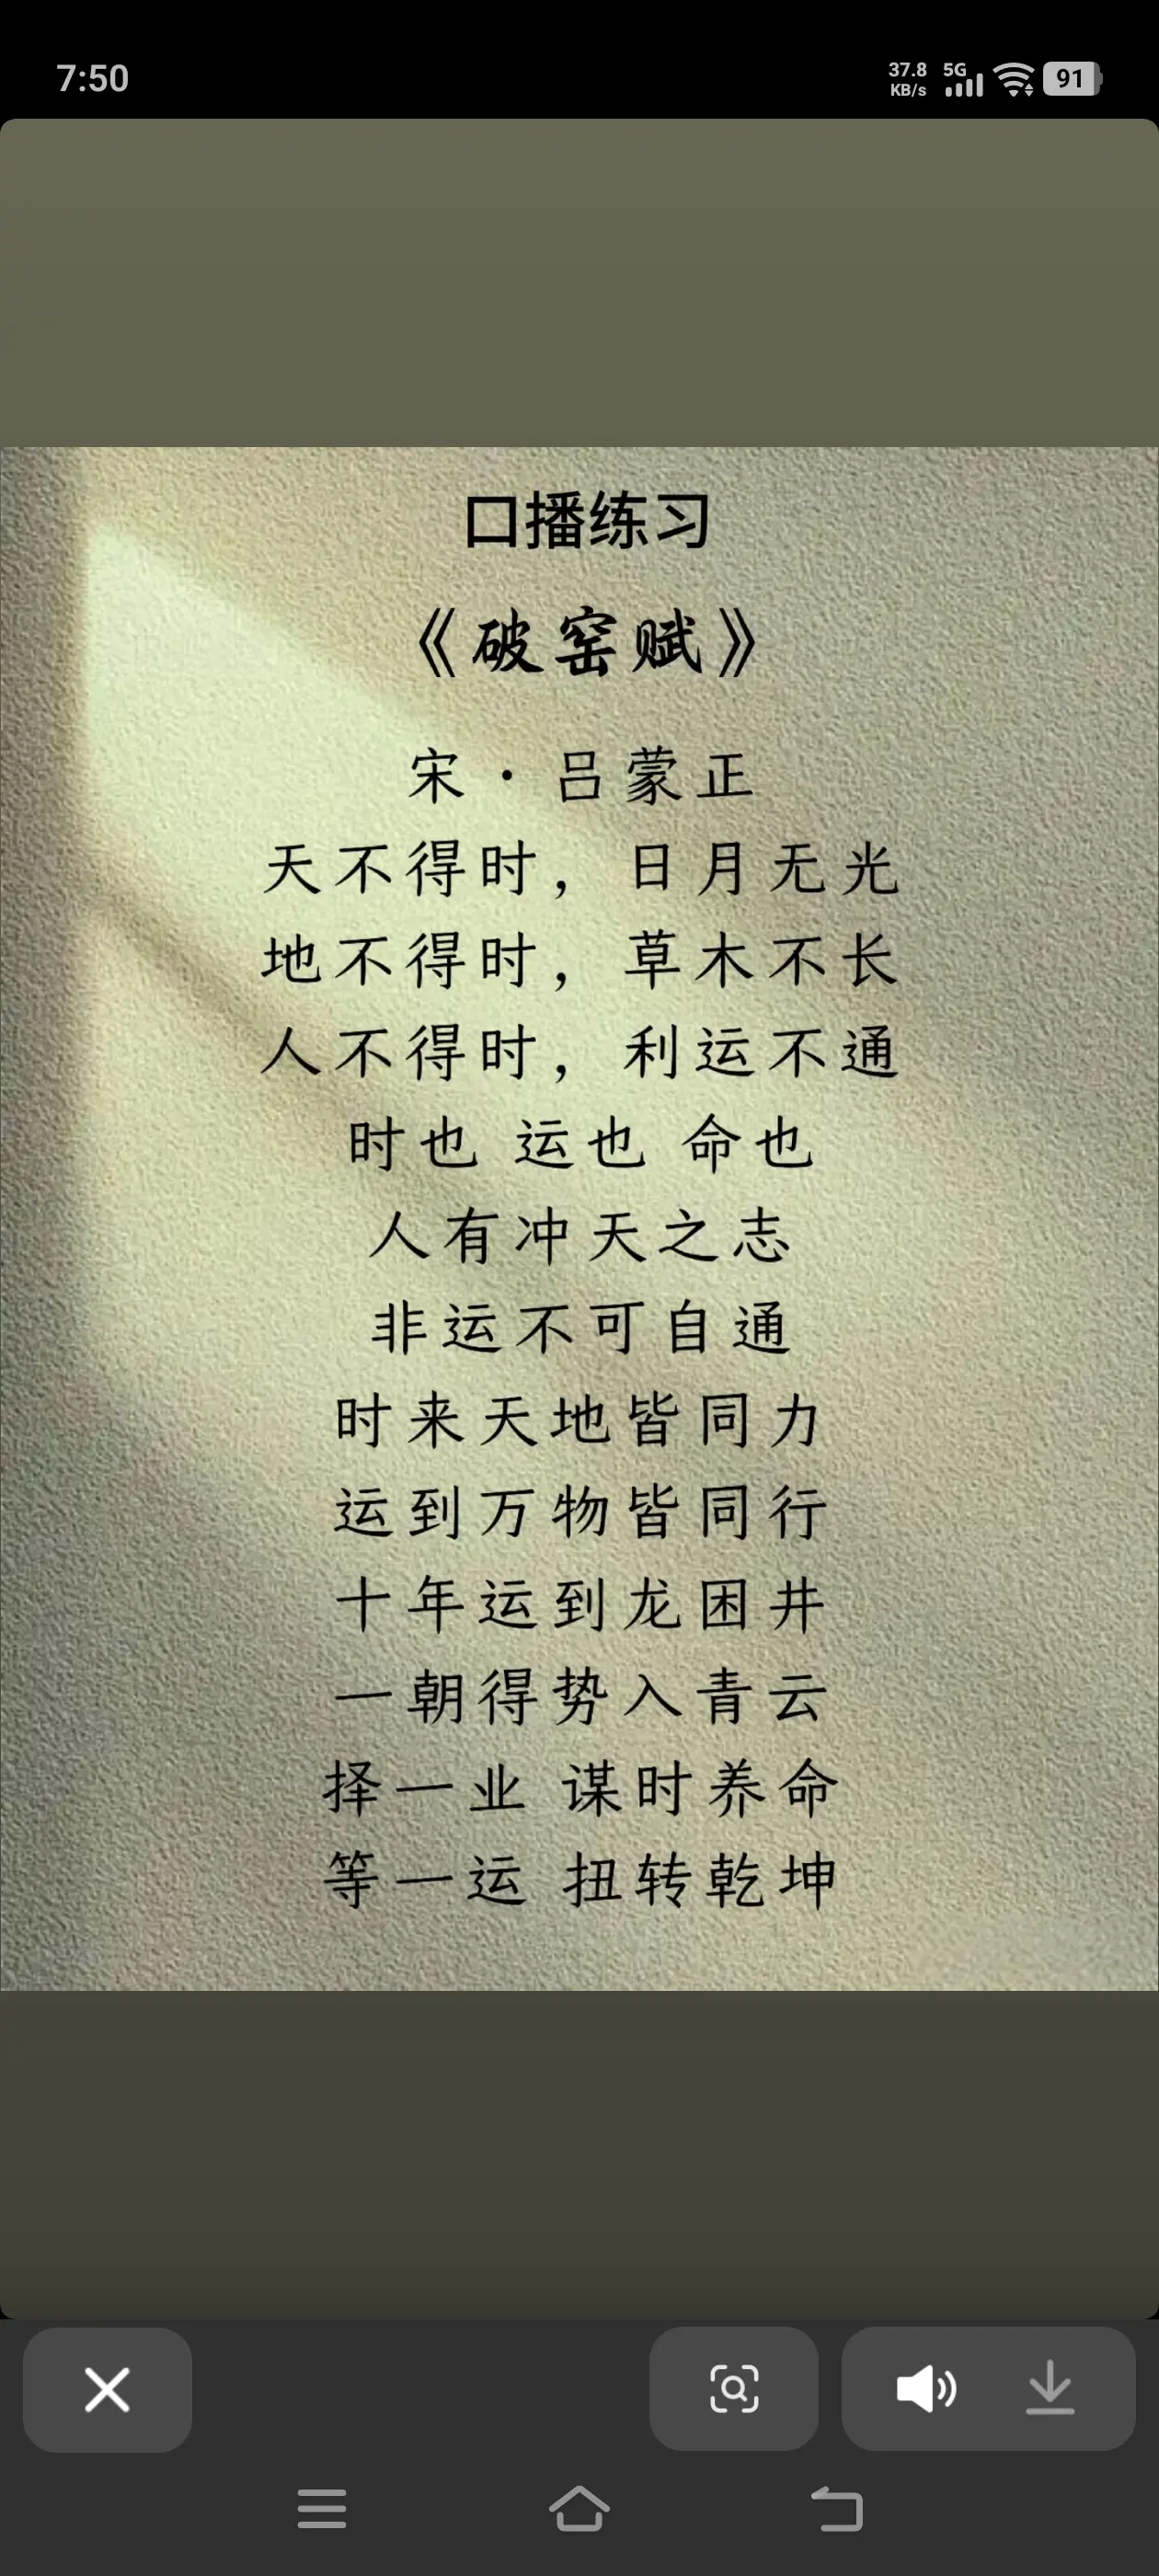 7:50
37.8 KB/s 5G 91
口播练习
《破窑赋》
宋·吕蒙正
天不得时，日月无光
地不得时，草木不长
人不得时，利运不通
时也 运也 命也
人有冲天之志
非运不可自通
时来天地皆同力
运到万物皆同行
十年运到龙困井
一朝得势入青云
择一业 谋时养命
等一运 扭转乾坤